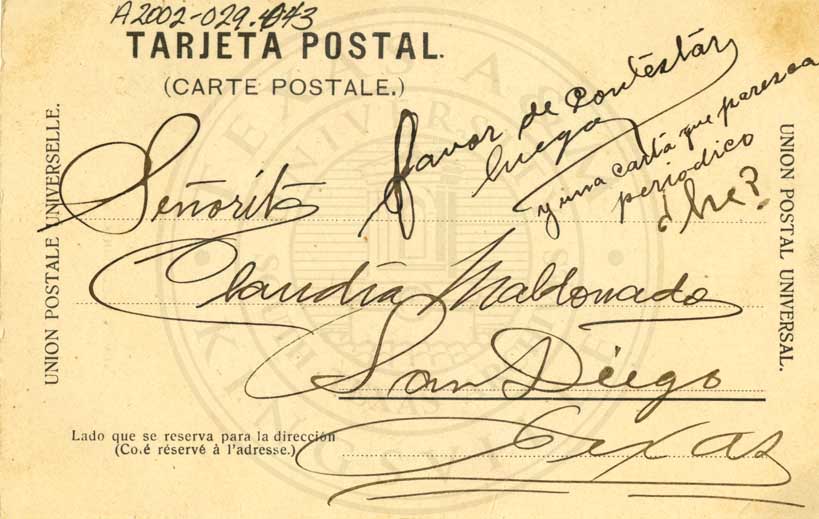 A2002-029.0043
TARJETA POSTAL.
(CARTE POSTALE.)
UNION POSTALE UNIVERSELLE.
UNION POSTAL UNIVERSAL.
Favor de Contestár
luego
y una carta que paresca
periodico
¿he?
Señorita
Claudia Maldonado
San Diego
Texas
Lado que se reserva para la dirección
(Co.é réservé à l'adresse.)